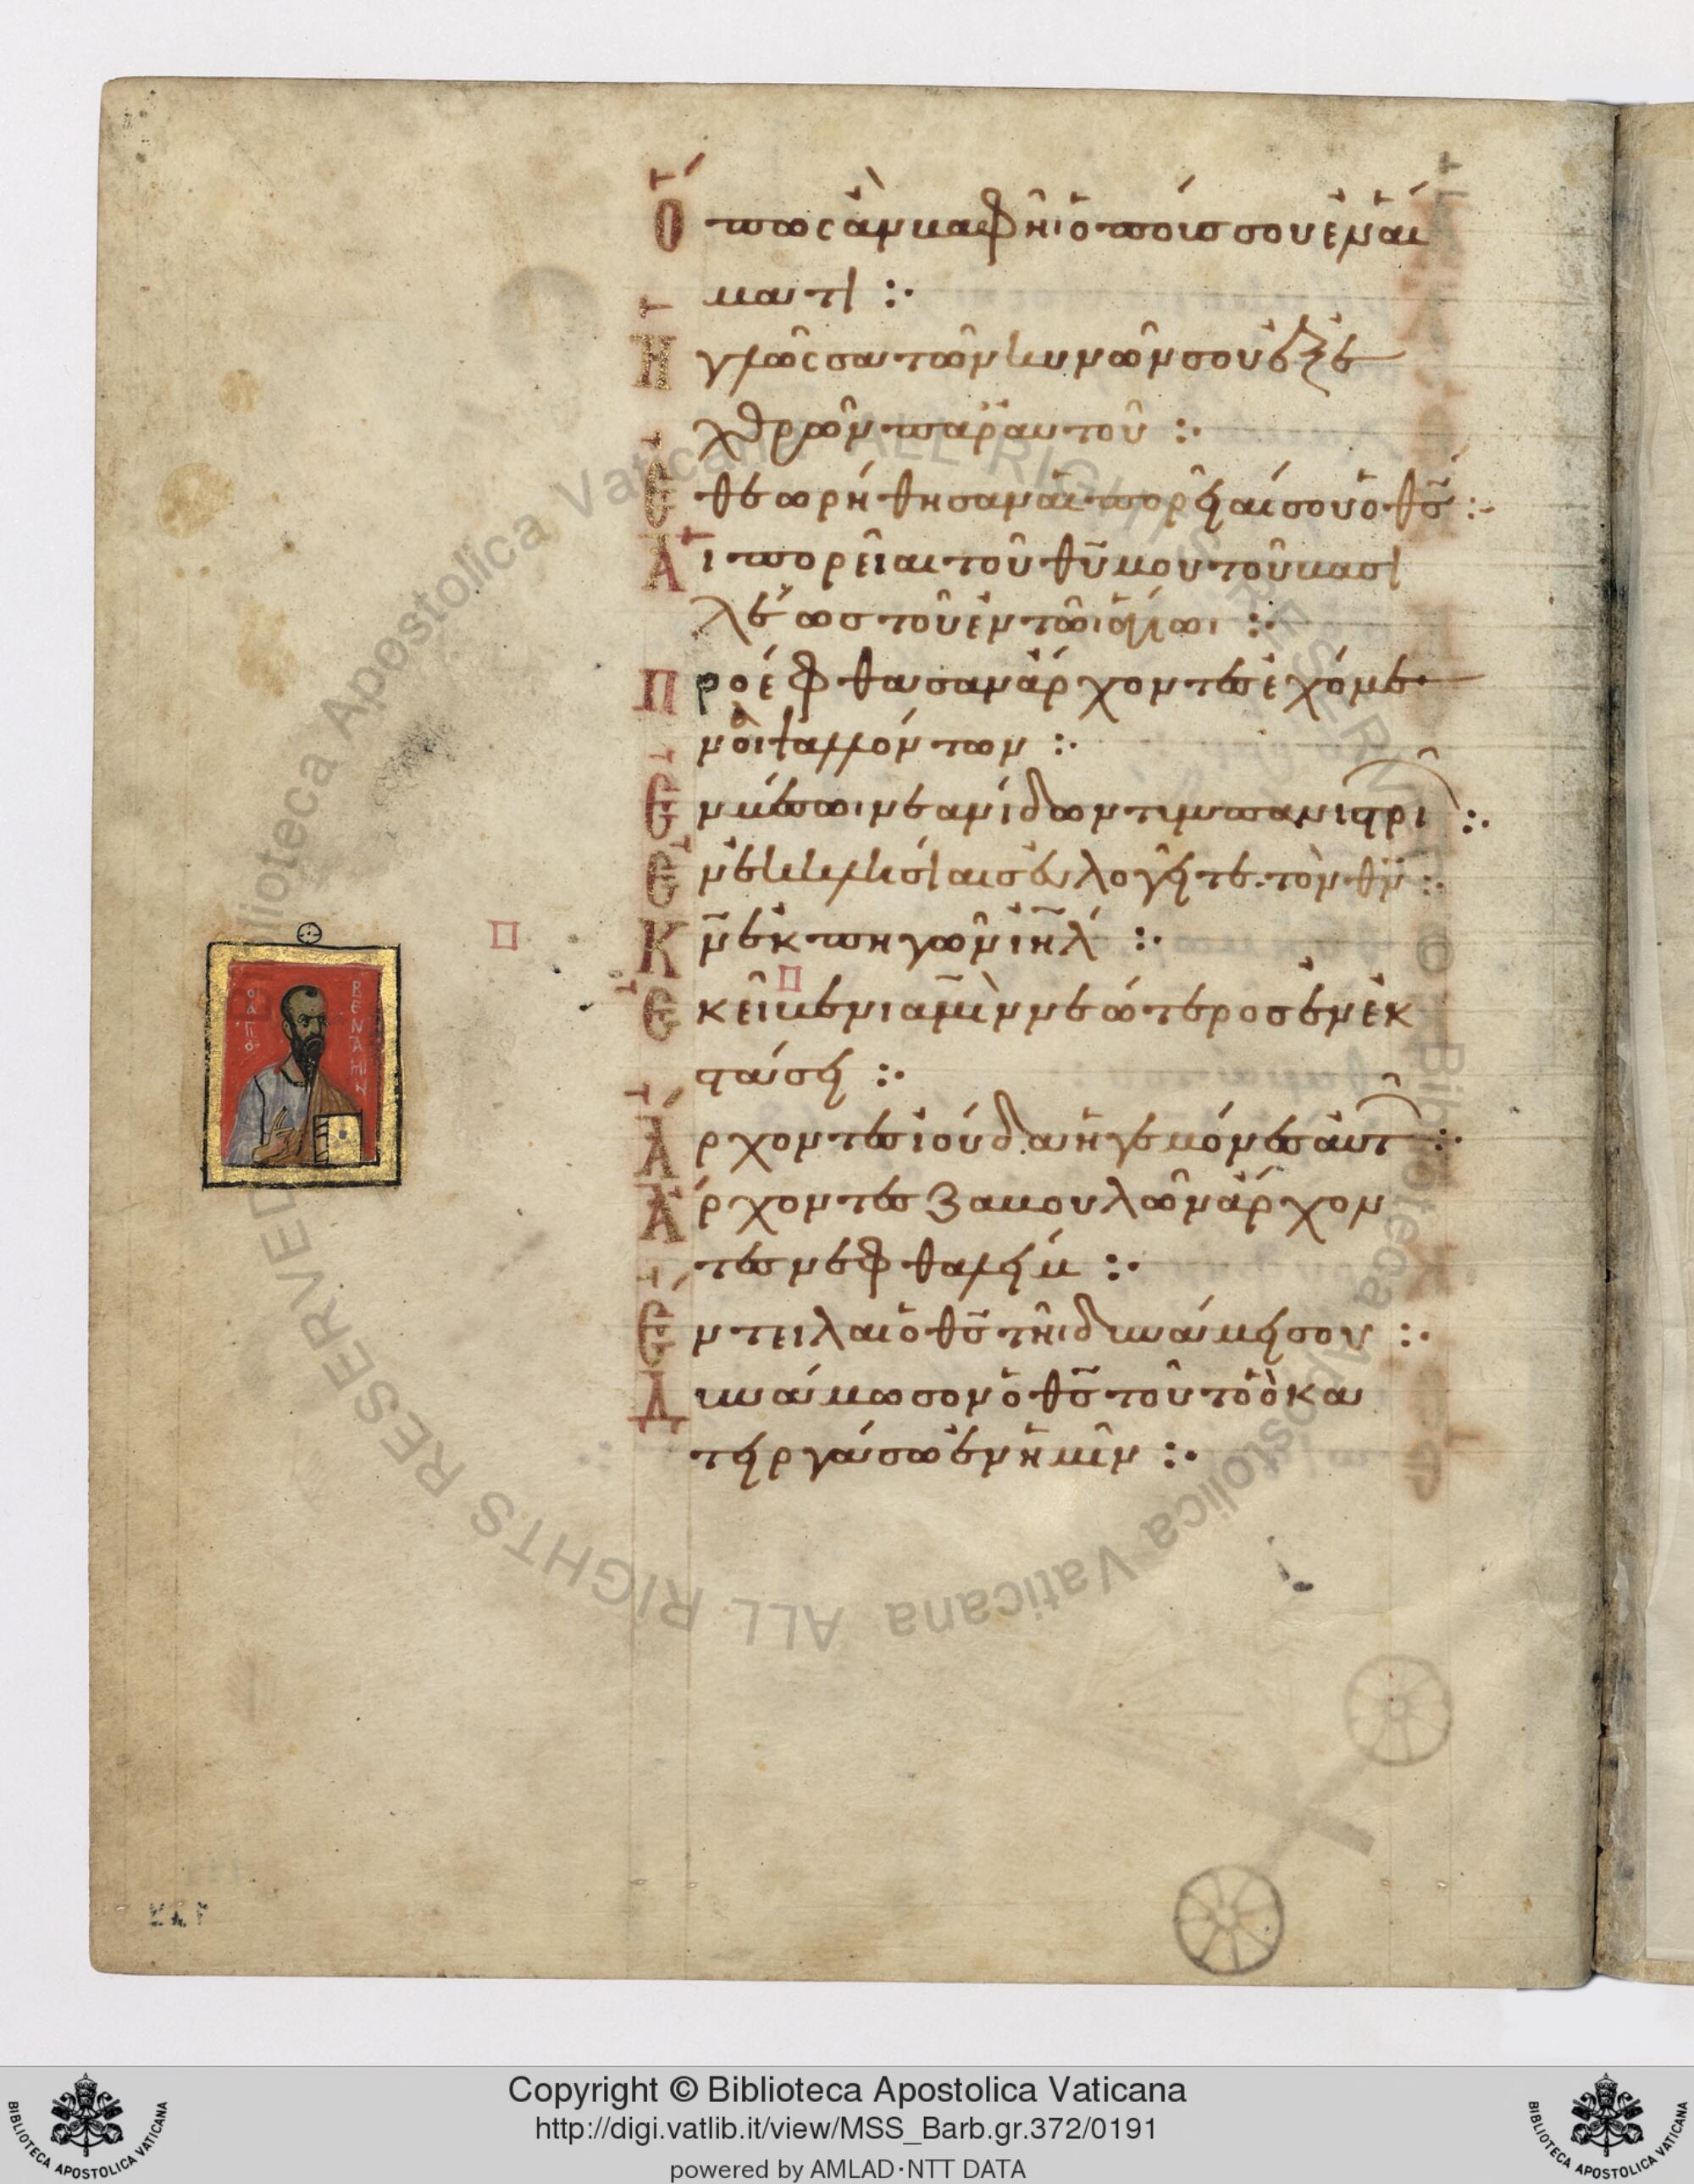 Ὅπως ἂν βαφῆι ὁ ποῦς σου ἐν αἵ
ματι :·
Ἡ γλῶσσα τῶν κυνῶν σου ἐξ ἐ
χθρῶν παρ' αὐτοῦ :·
Ἐθεωρήθησαν αἱ πορεῖαί σου ὁ θ̅ς̅ :·
Αἱ πορεῖαι τοῦ θ̅υ̅ μου τοῦ βασι
λέως τοῦ ἐν τῶι ἁγίωι :·
Προέφθασαν ἄρχοντες ἐχόμε
νοι ψαλλόντων :·
Ἐν μέσωι νεανίδων τυμπανιστρι :·
Ἐν ἐκκλησίαις εὐλογεῖτε τὸν θ̅ν̅ :·
Κ̅ν̅ ἐκ πηγῶν ι̅η̅λ̅ :·
Ἐκεῖ βενιαμὶν νεώτερος ἐν ἐκ
στάσει :·
Ἄρχοντες ἰούδα ἡγεμόνες αὐτ :·
Ἄρχοντες ζαβουλῶν ἄρχον
τες νεφθαλείμ :·
Ἔντειλαι ὁ θ̅ς̅ τῆι δυνάμει σου :·
Δυνάμωσον ὁ θ̅ς̅ τοῦτο ὃ κα
τειργάσω ἐν ἡμῖν :·
Ο ΑΠΟ
ΒΕΝΙΑΜΗΝ
Biblioteca Apostolica Vaticana ALL RIGHTS RESERVED
© Biblioteca Apostolica Vaticana ALL RIGHTS RESERVED
Copyright © Biblioteca Apostolica Vaticana
http://digi.vatlib.it/view/MSS_Barb.gr.372/0191
powered by AMLAD·NTT DATA
BIBLIOTECA APOSTOLICA VATICANA
BIBLIOTECA APOSTOLICA VATICANA